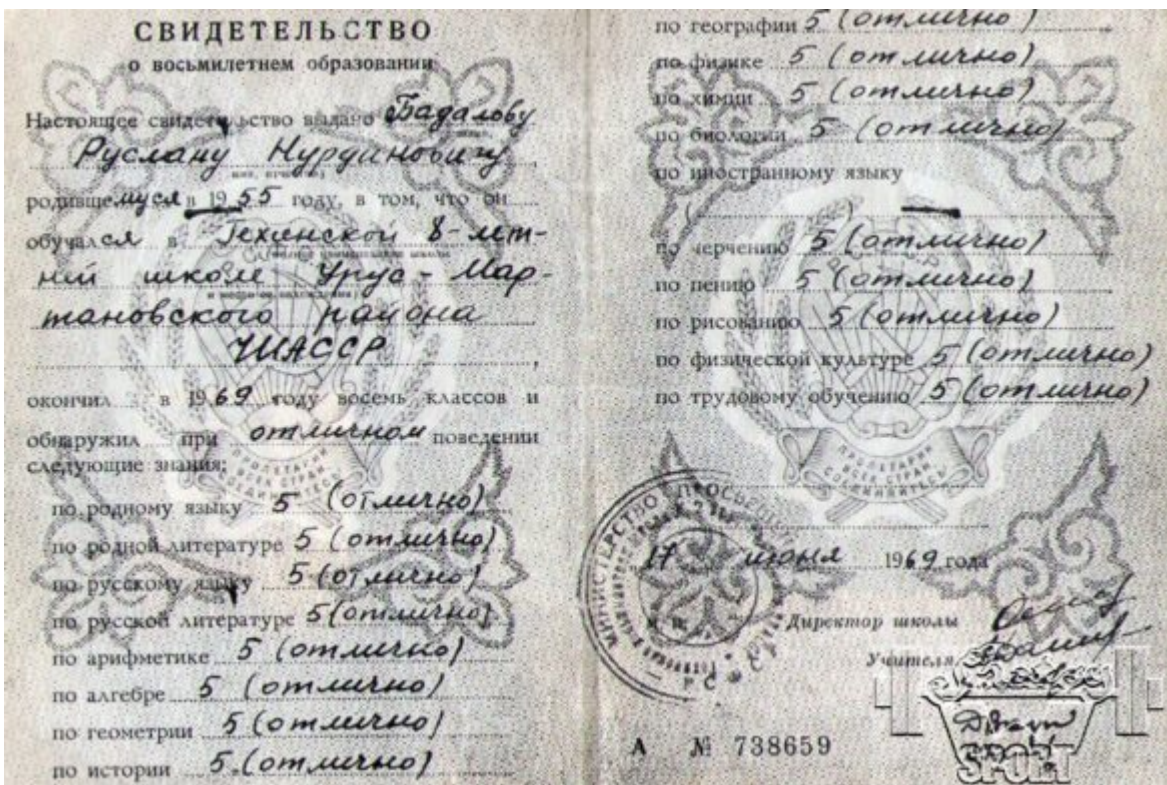 СВИДЕТЕЛЬСТВО
о восьмилетнем образовании
Настоящее свидетельство выдано Бадалову
Руслану Нурдиновичу,
родившемуся в 1955 году, в том, что он
обучался в Гехинской 8-лет-
ней школе Урус-Мар-
тановского района
ЧИАССР,
окончил в 1969 году восемь классов и
обнаружил при отличном поведении
следующие знания:
по родному языку 5 (отлично)
по родной литературе 5 (отлично)
по русскому языку 5 (отлично)
по русской литературе 5 (отлично)
по арифметике 5 (отлично)
по алгебре 5 (отлично)
по геометрии 5 (отлично)
по истории 5 (отлично)
по географии 5 (отлично)
по физике 5 (отлично)
по химии 5 (отлично)
по биологии 5 (отлично)
по иностранному языку
( ) —
по черчению 5 (отлично)
по пению 5 (отлично)
по рисованию 5 (отлично)
по физической культуре 5 (отлично)
по трудовому обучению 5 (отлично)
ПРОЛЕТАРИИ
ВСЕХ СТРАН
СОЕДИНЯЙТЕСЬ
МИНИСТЕРСТВО ПРОСВЕЩ
17 июня 1969 года
М. П.
Директор школы
Учителя
А № 738659
SPORT